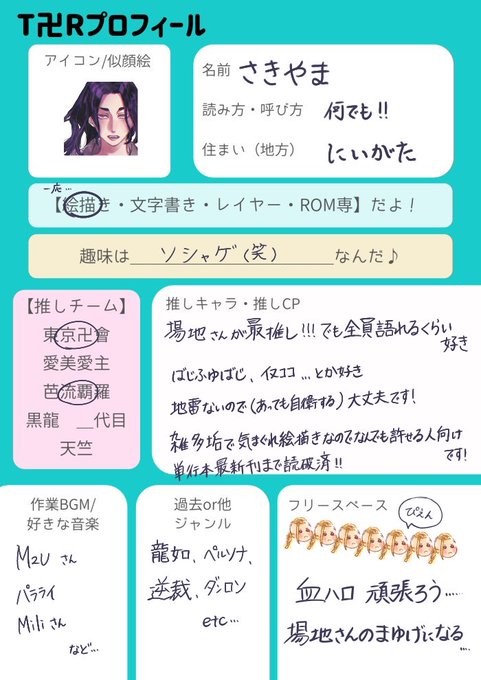 T卍Rプロフィール
アイコン/似顔絵
名前 さきやま
読み方・呼び方 何でも!!
住まい（地方） にいがた
一応…
【絵描き・文字書き・レイヤー・ROM専】だよ！
趣味は ソシャゲ(笑) なんだ♪
【推しチーム】
東京卍會
愛美愛主
芭流覇羅
黒龍 __代目
天竺
推しキャラ・推しCP
場地さんが最推し!!! でも全員語れるくらい
好き
ばじふゆばじ、イヌココ…とか好き
地雷ないので(あっても自衛する) 大丈夫です!
雑多垢で気まぐれ絵描きなのでなんでも許せる人向け
です!
単行本最新刊まで読破済!!
作業BGM/
好きな音楽
M2U さん
パラライ
Mili さん
など…
過去or他
ジャンル
龍如、ペルソナ、
逆裁、ダンロン
etc…
フリースペース
ぴえん
血ハロ 頑張ろう…
場地さんのまゆげになる…